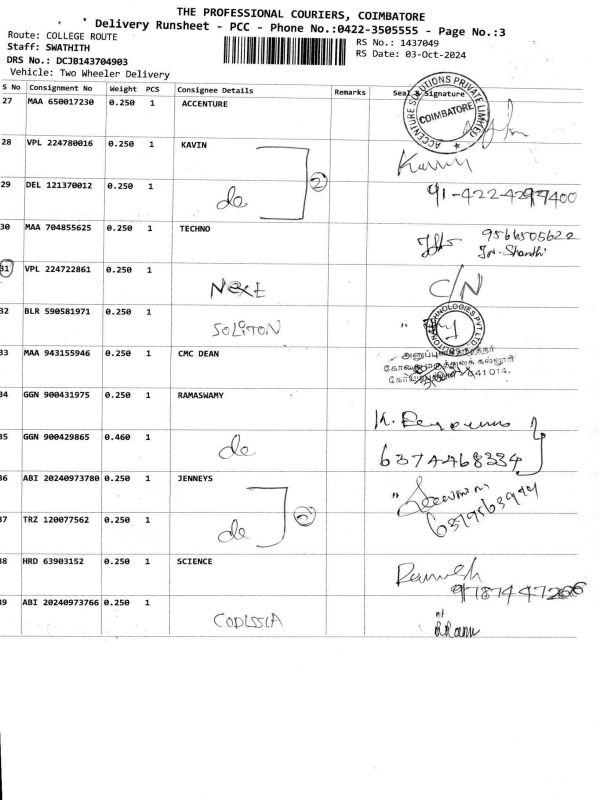 THE PROFESSIONAL COURIERS, COIMBATORE
Delivery Runsheet - PCC - Phone No.:0422-3505555 - Page No.:3
Route: COLLEGE ROUTE
RS No.: 1437049
Staff: SWATHITH
RS Date: 03-Oct-2024
DRS No.: DCJB143704903
Vehicle: Two Wheeler Delivery
S No Consignment No Weight PCS Consignee Details Remarks Seal & Signature
27 MAA 650017230 0.250 1 ACCENTURE
ACCENTURE SOLUTIONS PRIVATE LIMITED
COIMBATORE
28 VPL 224780016 0.250 1 KAVIN
Kavin
29 DEL 121370012 0.250 1
do 2
30 MAA 704855625 0.250 1 TECHNO
9566505622
Shanthi
31 VPL 224722861 0.250 1
Next C/N
32 BLR 590581971 0.250 1
SOLITON "
TECHNOLOGIES PVT LTD
33 MAA 943155946 0.250 1 CMC DEAN
கோவை மருத்துவக் கல்லூரி
641014.
34 GGN 900431975 0.250 1 RAMASWAMY
35 GGN 900429865 0.460 1
do 6374468334
36 ABI 20240973780 0.250 1 JENNEYS
"
37 TRZ 120077562 0.250 1
do
38 HRD 63903152 0.250 1 SCIENCE
Ramesh
39 ABI 20240973766 0.250 1
CODISSIA